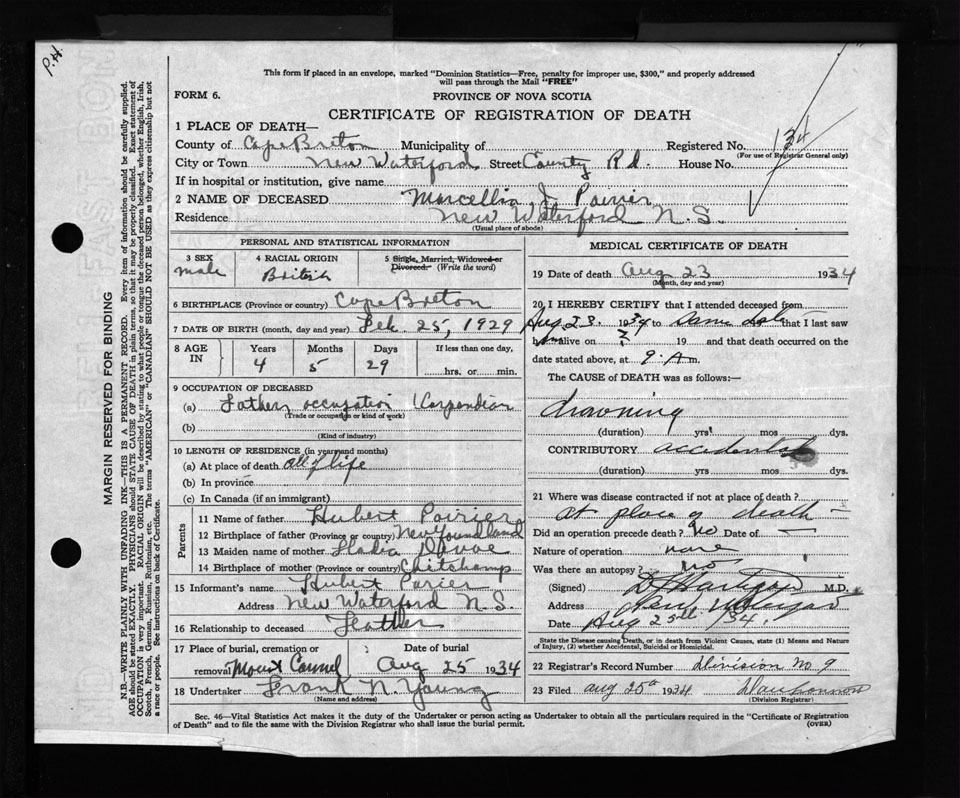 P.H.
This form if placed in an envelope, marked "Dominion Statistics—Free, penalty for improper use, $300," and properly addressed
will pass through the Mail "FREE"
FORM 6.
PROVINCE OF NOVA SCOTIA
CERTIFICATE OF REGISTRATION OF DEATH
1 PLACE OF DEATH—
County of Cape Breton Municipality of Registered No. 134
(For use of Registrar General only)
City or Town New Waterford Street County Rd. House No.
If in hospital or institution, give name
2 NAME OF DECEASED Marcellin J. Poirier
Residence New Waterford N.S.
(Usual place of abode)
PERSONAL AND STATISTICAL INFORMATION
3 SEX male
4 RACIAL ORIGIN British
5 Single, Married, Widowed or Divorced. (Write the word)
6 BIRTHPLACE (Province or country) Cape Breton
7 DATE OF BIRTH (month, day and year) Feb. 25, 1929
8 AGE IN Years 4 Months 5 Days 29 If less than one day, hrs. or min.
9 OCCUPATION OF DECEASED
(a) Father occupation
(Trade or occupation or kind of work)
(b)
(Kind of industry)
10 LENGTH OF RESIDENCE (in years and months)
(a) At place of death all of life
(b) In province
(c) In Canada (if an immigrant)
Parents
11 Name of father Hubert Poirier
12 Birthplace of father (Province or country) Newfoundland
13 Maiden name of mother
14 Birthplace of mother (Province or country) Chitchamp
15 Informant's name Hubert Parier
Address New Waterford N.S.
16 Relationship to deceased Feather
17 Place of burial, cremation or removal Mount Carmel
Date of burial Aug 25 1934
18 Undertaker Frank N. Young
(Name and address)
MEDICAL CERTIFICATE OF DEATH
19 Date of death Aug 23 1934
(Month, day and year)
20 I HEREBY CERTIFY that I attended deceased from
Aug 23. 1934 to Same date that I last saw
h alive on 19 and that death occurred on the
date stated above, at 9. A.m.
The CAUSE OF DEATH was as follows:—
drowning
(duration) yrs. mos dys.
CONTRIBUTORY accidental
(duration) yrs. mos. dys.
21 Where was disease contracted if not at place of death?
at place of death —
Did an operation precede death? no Date of —
Nature of operation none
Was there an autopsy? no
(Signed) M.D.
Address
Date Aug 25th /34.
State the Disease causing Death, or in death from Violent Causes, state (1) Means and Nature
of Injury, (2) whether Accidental, Suicidal or Homicidal.
22 Registrar's Record Number division No 9
23 Filed aug 25th 1934
(Division Registrar)
Sec. 46—Vital Statistics Act makes it the duty of the Undertaker or person acting as Undertaker to obtain all the particulars required in the "Certificate of Registration
of Death" and to file the same with the Division Registrar who shall issue the burial permit.
(OVER)
MARGIN RESERVED FOR BINDING
N.B.—WRITE PLAINLY WITH UNFADING INK—THIS IS A PERMANENT RECORD. Every item of information should be carefully supplied.
AGE should be stated EXACTLY. PHYSICIANS should STATE CAUSE OF DEATH in plain terms, so that it may be properly classified. Exact statement of
OCCUPATION is very important. RACIAL ORIGIN will be described by stating to what people or tongue the deceased person belonged, whether English, Irish,
Scotch, French, German, Russian, Ruthenian, etc. The terms "AMERICAN" or "CANADIAN" SHOULD NOT BE USED as they express citizenship but not
a race or people. See instructions on back of Certificate.